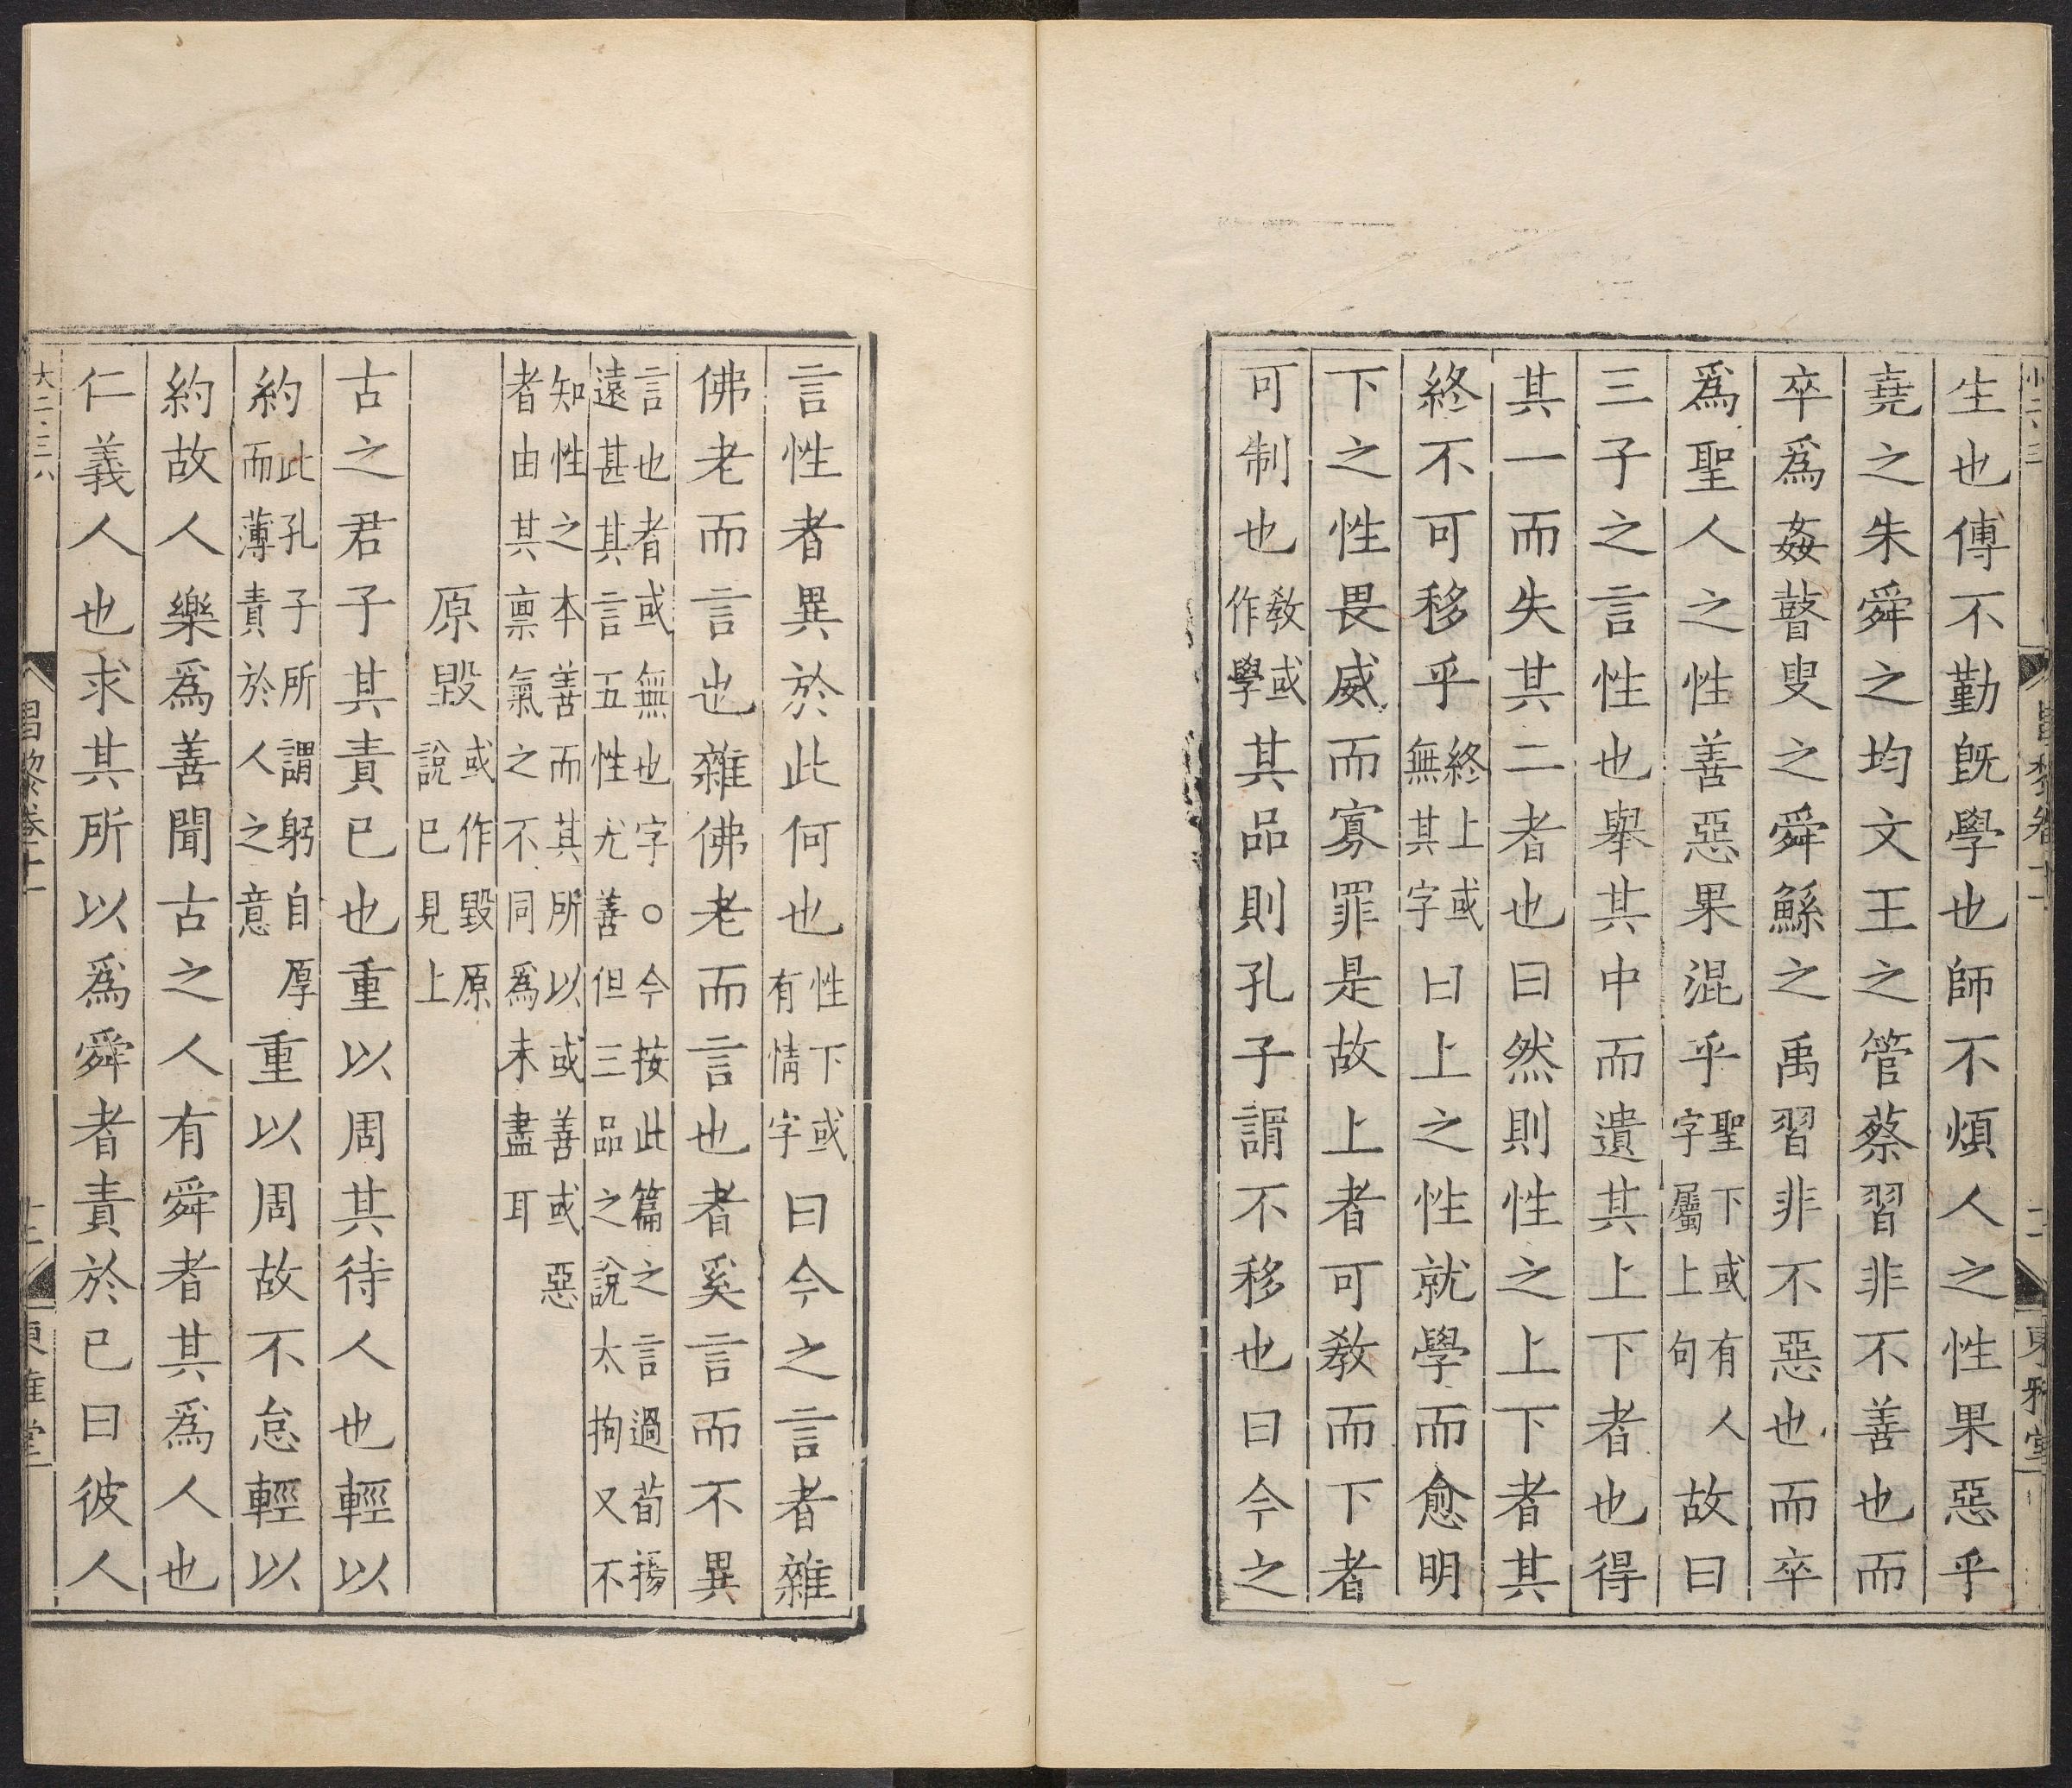 生也傅不勤旣學也師不煩人之性果惡乎
堯之朱舜之均文王之管蔡習非不善也而
卒爲姦瞽叟之舜鯀之禹習非不惡也而卒
爲聖人之性善惡果混乎聖下或有人字屬上句故曰
三子之言性也舉其中而遺其上下者也得
其一而失其二者也曰然則性之上下者其
終不可移乎終上或無其字曰上之性就學而愈明
下之性畏威而寡罪是故上者可敎而下者
可制也敎或作學其品則孔子謂不移也曰今之
言性者異於此何也性下或有情字曰今之言者雜
佛老而言也雜佛老而言也者奚言而不異
言也者或無也字○今按此篇之言過荀揚
遠甚其言五性尤善但三品之說太拘又不
知性之本善而其所以或善或惡
者由其稟氣之不同爲未盡耳
原毀或作毀原說已見上
古之君子其責已也重以周其待人也輕以
約此孔子所謂躬自厚而薄責於人之意重以周故不怠輕以
約故人樂爲善聞古之人有舜者其爲人也
仁義人也求其所以爲舜者責於已曰彼人
大二、三八
昌黎卷十一
東雅堂